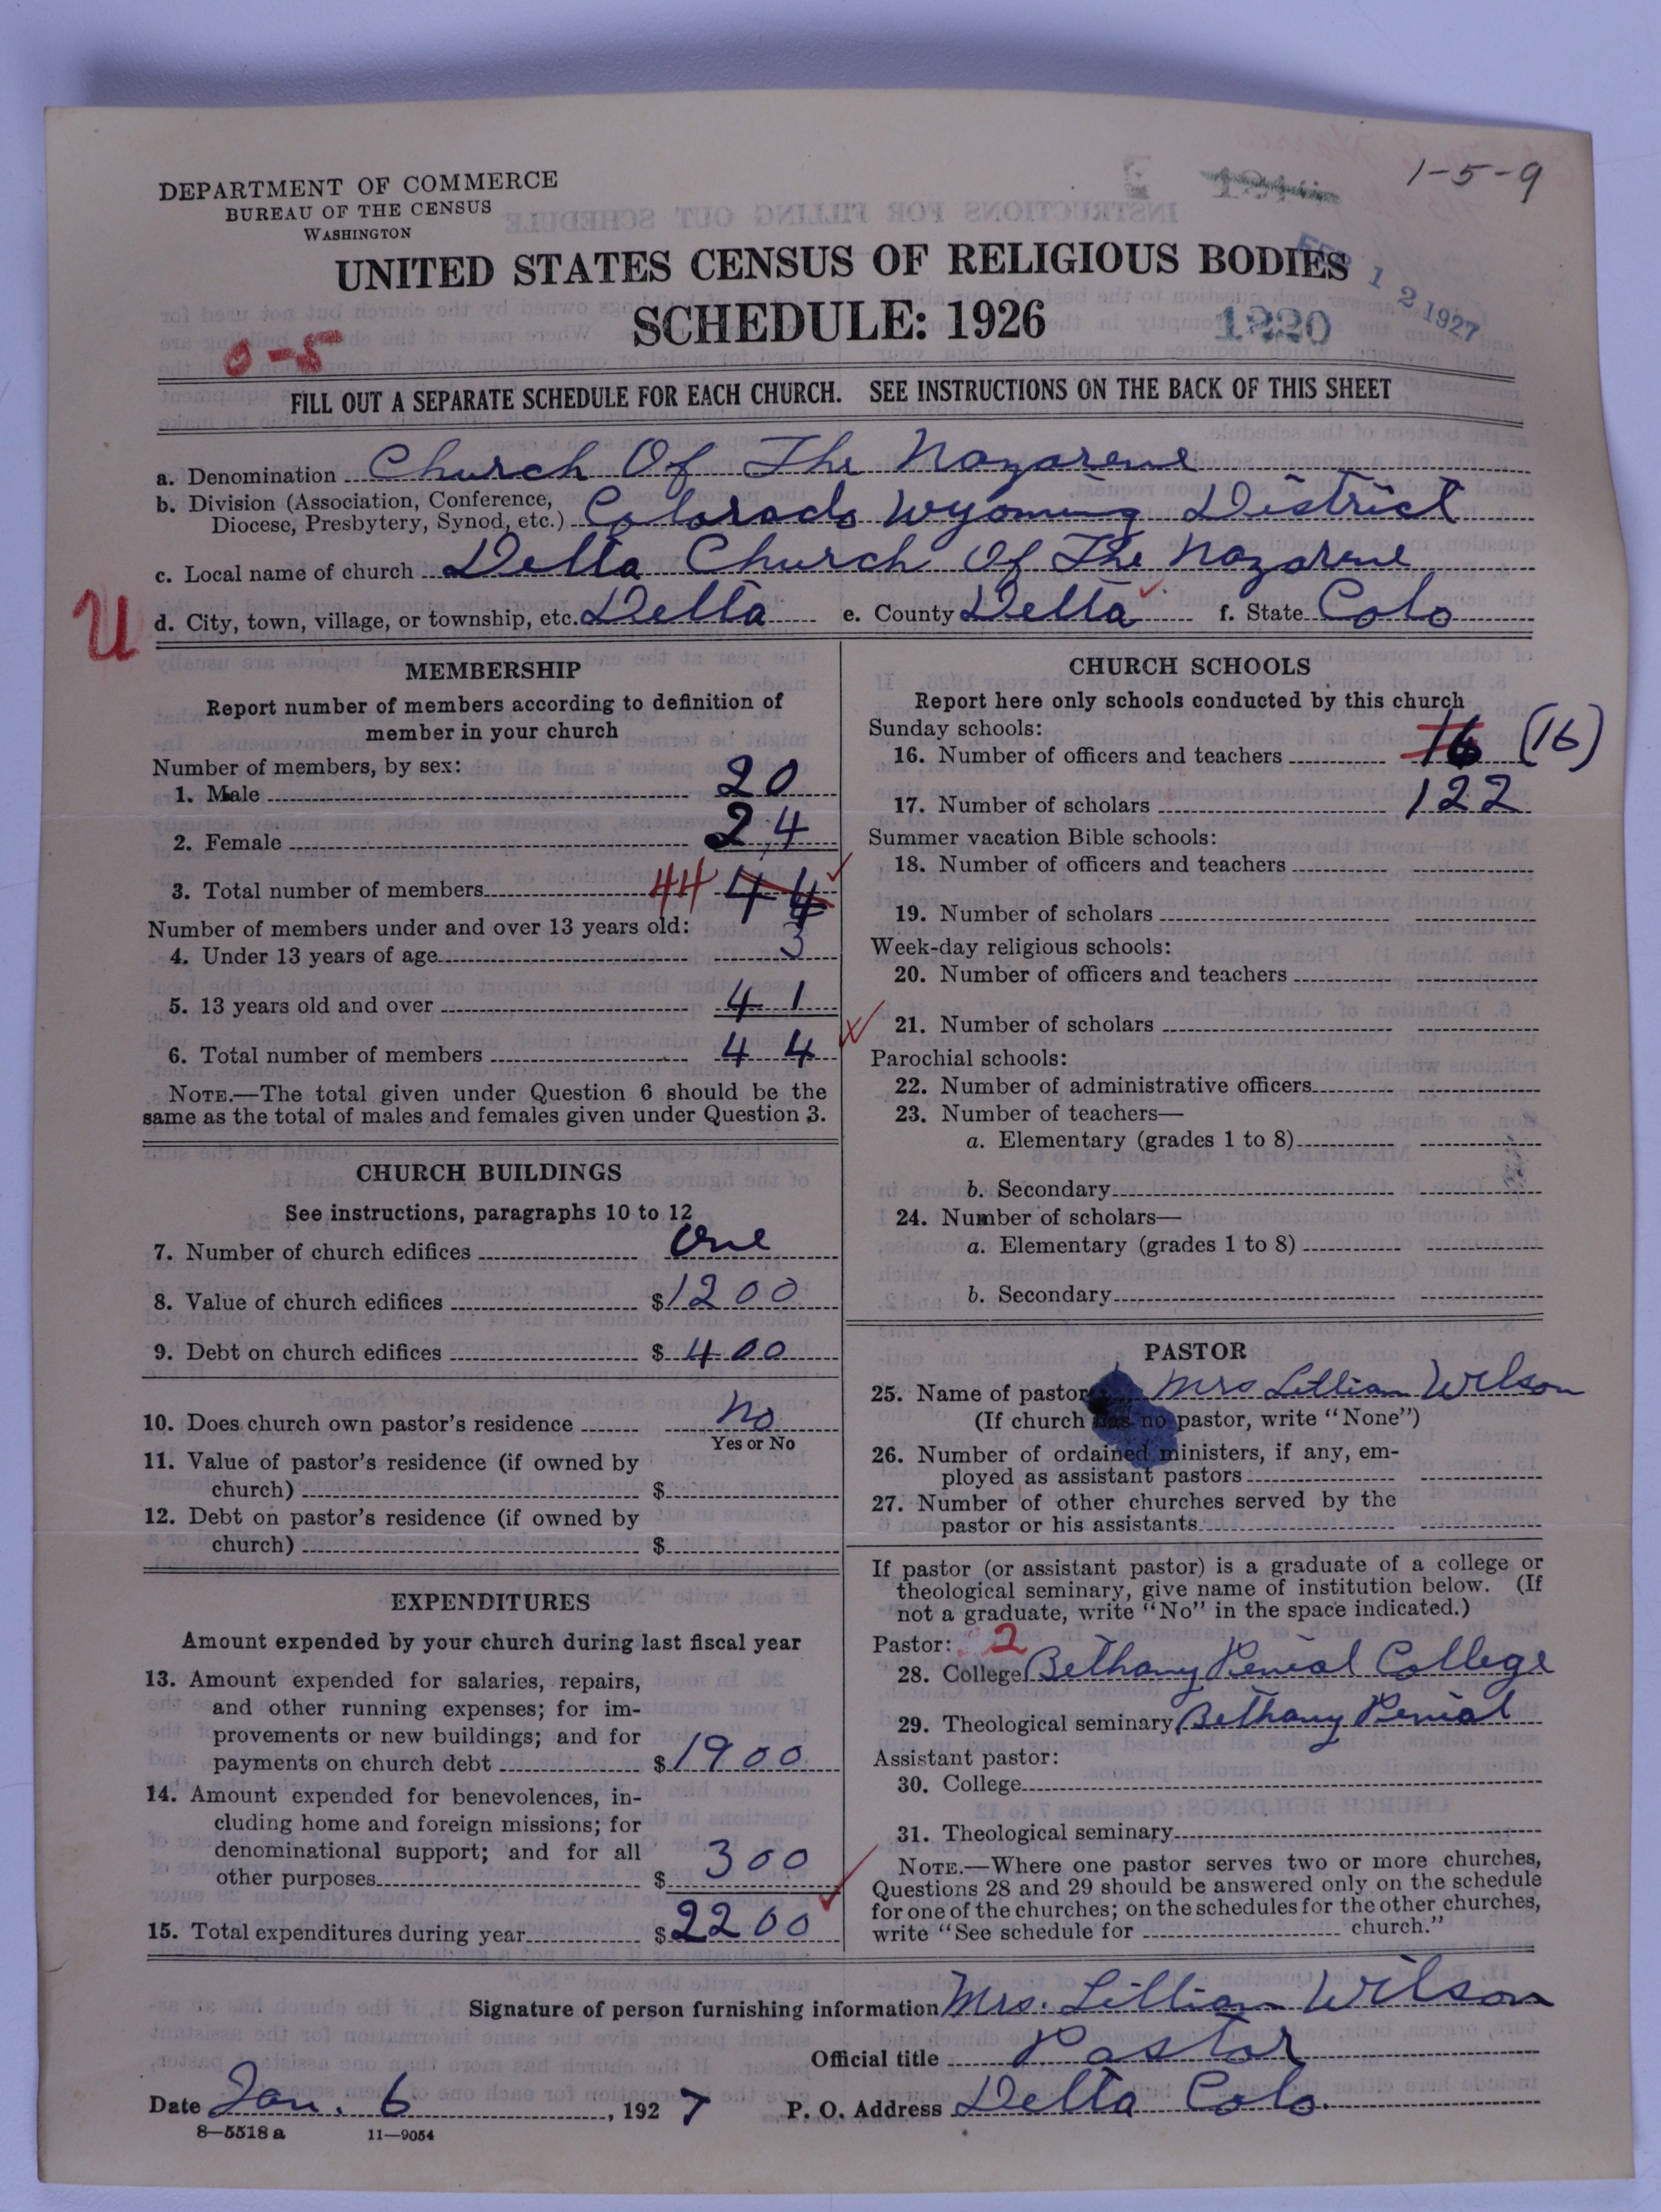 1-5-9
DEPARTMENT OF COMMERCE
BUREAU OF THE CENSUS
WASHINGTON
UNITED STATES CENSUS OF RELIGIOUS BODIES
SCHEDULE: 1926
FEB 12 1927
1220
0-5
FILL OUT A SEPARATE SCHEDULE FOR EACH CHURCH. SEE INSTRUCTIONS ON THE BACK OF THIS SHEET
a. Denomination Church Of The Nazarene
b. Division (Association, Conference, Diocese, Presbytery, Synod, etc.) Colorado Wyoming District
c. Local name of church Delta Church Of The Nazarene
U
d. City, town, village, or township, etc. Delta e. County Delta f. State Colo
MEMBERSHIP
Report number of members according to definition of
member in your church
Number of members, by sex:
1. Male 20
2. Female 24
3. Total number of members 44 44
Number of members under and over 13 years old:
4. Under 13 years of age 3
5. 13 years old and over 41
6. Total number of members 44
NOTE.—The total given under Question 6 should be the
same as the total of males and females given under Question 3.
CHURCH BUILDINGS
See instructions, paragraphs 10 to 12
7. Number of church edifices One
8. Value of church edifices $1200
9. Debt on church edifices $400
10. Does church own pastor's residence No
Yes or No
11. Value of pastor's residence (if owned by
church) $
12. Debt on pastor's residence (if owned by
church) $
EXPENDITURES
Amount expended by your church during last fiscal year
13. Amount expended for salaries, repairs,
and other running expenses; for im-
provements or new buildings; and for
payments on church debt $1900
14. Amount expended for benevolences, in-
cluding home and foreign missions; for
denominational support; and for all
other purposes $300
15. Total expenditures during year $2200
CHURCH SCHOOLS
Report here only schools conducted by this church
Sunday schools:
16. Number of officers and teachers 16 (16)
17. Number of scholars 122
Summer vacation Bible schools:
18. Number of officers and teachers
19. Number of scholars
Week-day religious schools:
20. Number of officers and teachers
21. Number of scholars
Parochial schools:
22. Number of administrative officers
23. Number of teachers—
a. Elementary (grades 1 to 8)
b. Secondary
24. Number of scholars—
a. Elementary (grades 1 to 8)
b. Secondary
PASTOR
25. Name of pastor Mrs Lillian Wilson
(If church has no pastor, write "None")
26. Number of ordained ministers, if any, em-
ployed as assistant pastors
27. Number of other churches served by the
pastor or his assistants
If pastor (or assistant pastor) is a graduate of a college or
theological seminary, give name of institution below. (If
not a graduate, write "No" in the space indicated.)
Pastor: 2
28. College Bethany Penial College
29. Theological seminary Bethany Penial
Assistant pastor:
30. College
31. Theological seminary
NOTE.—Where one pastor serves two or more churches,
Questions 28 and 29 should be answered only on the schedule
for one of the churches; on the schedules for the other churches,
write "See schedule for church."
Signature of person furnishing information Mrs. Lillian Wilson
Official title Pastor
Date Jan. 6, 1927 P. O. Address Delta Colo.
8—5518a 11—9054